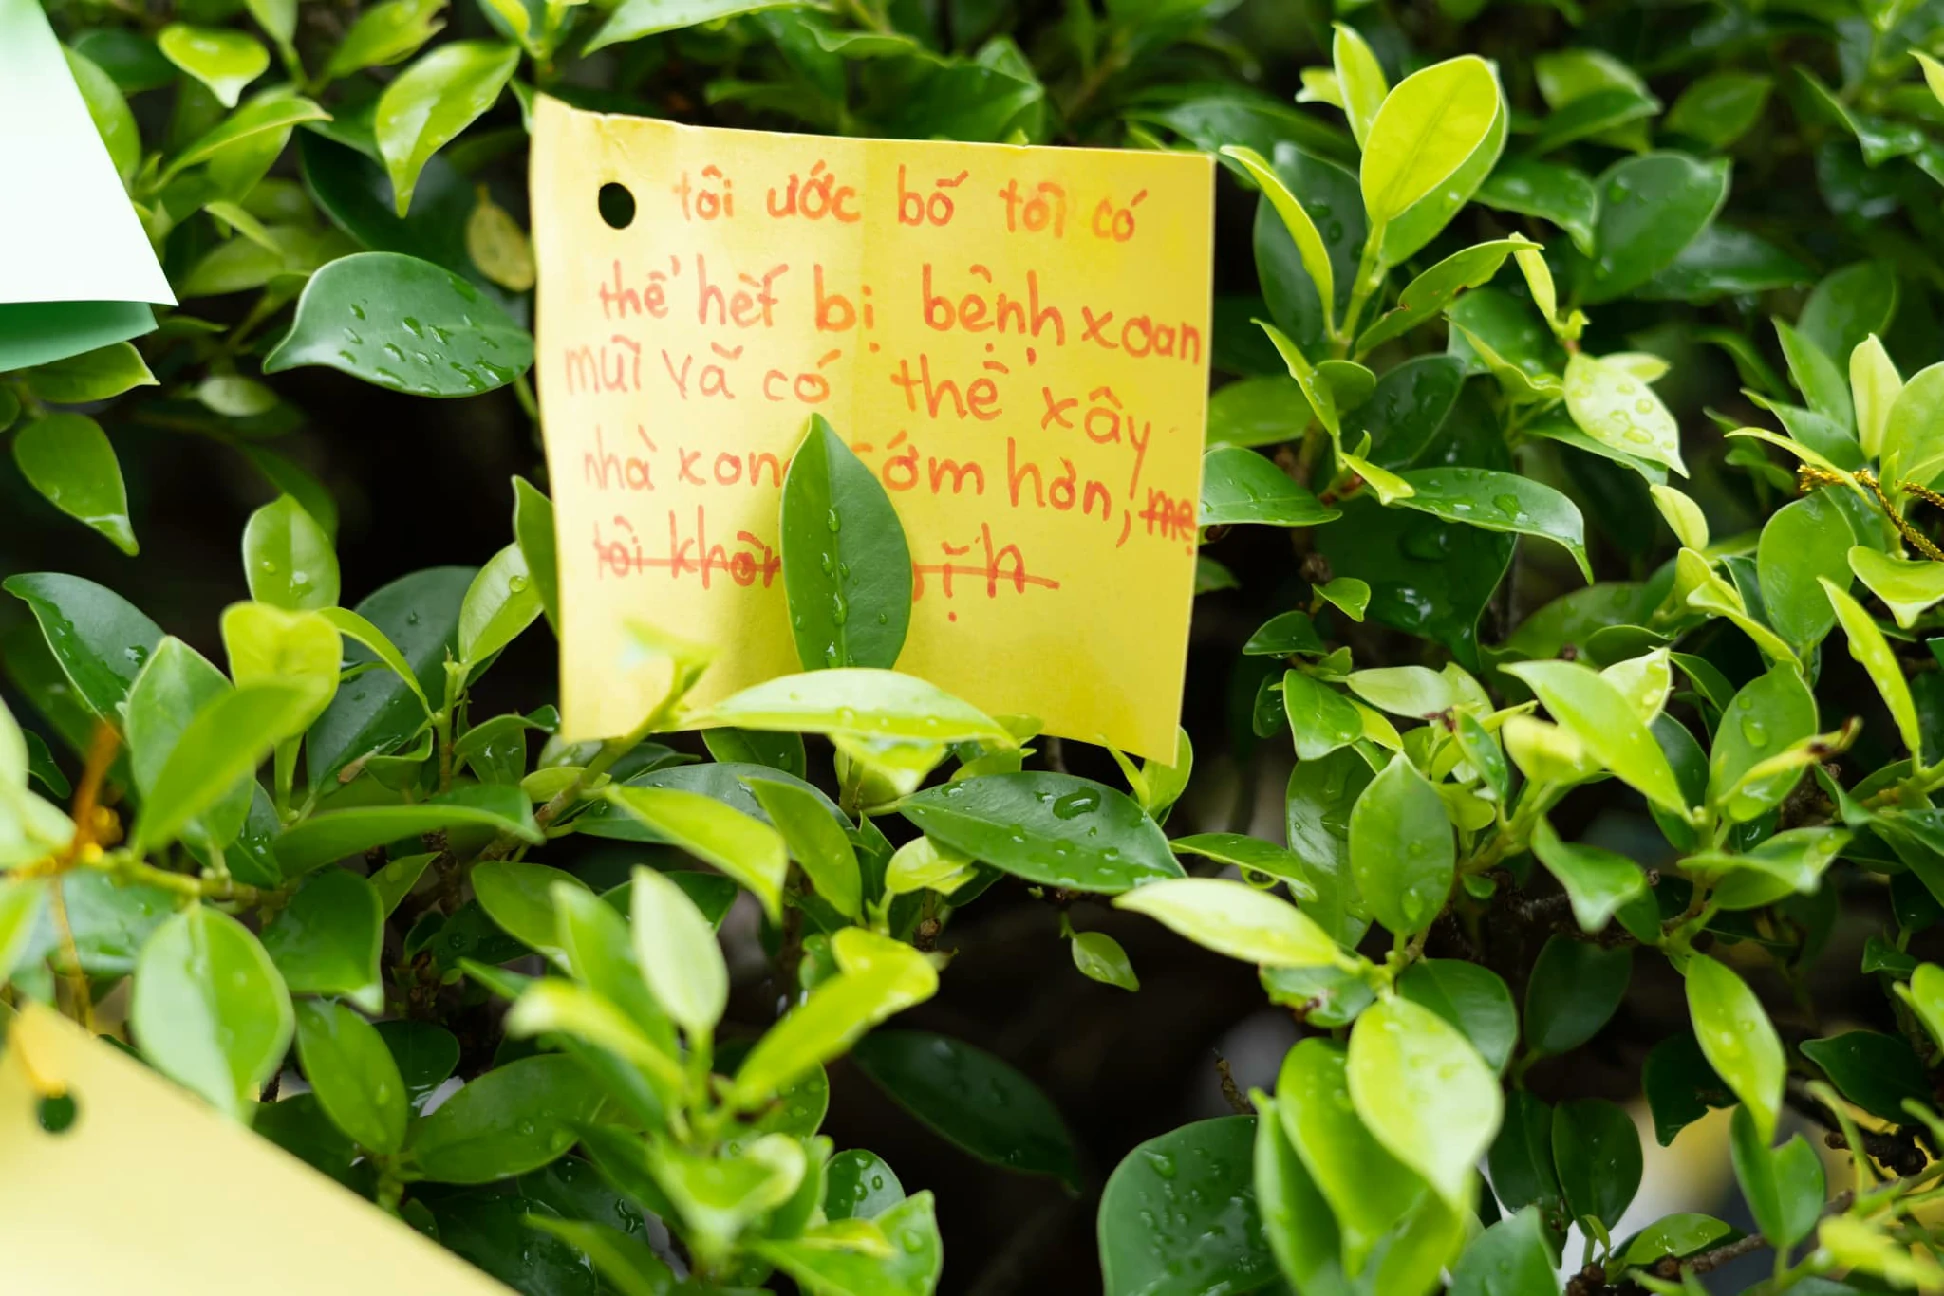 tôi ước bố tôi có
thể hết bị bệnh xoan
mũi và có thể xây
nhà xong sớm hơn, mẹ
tôi